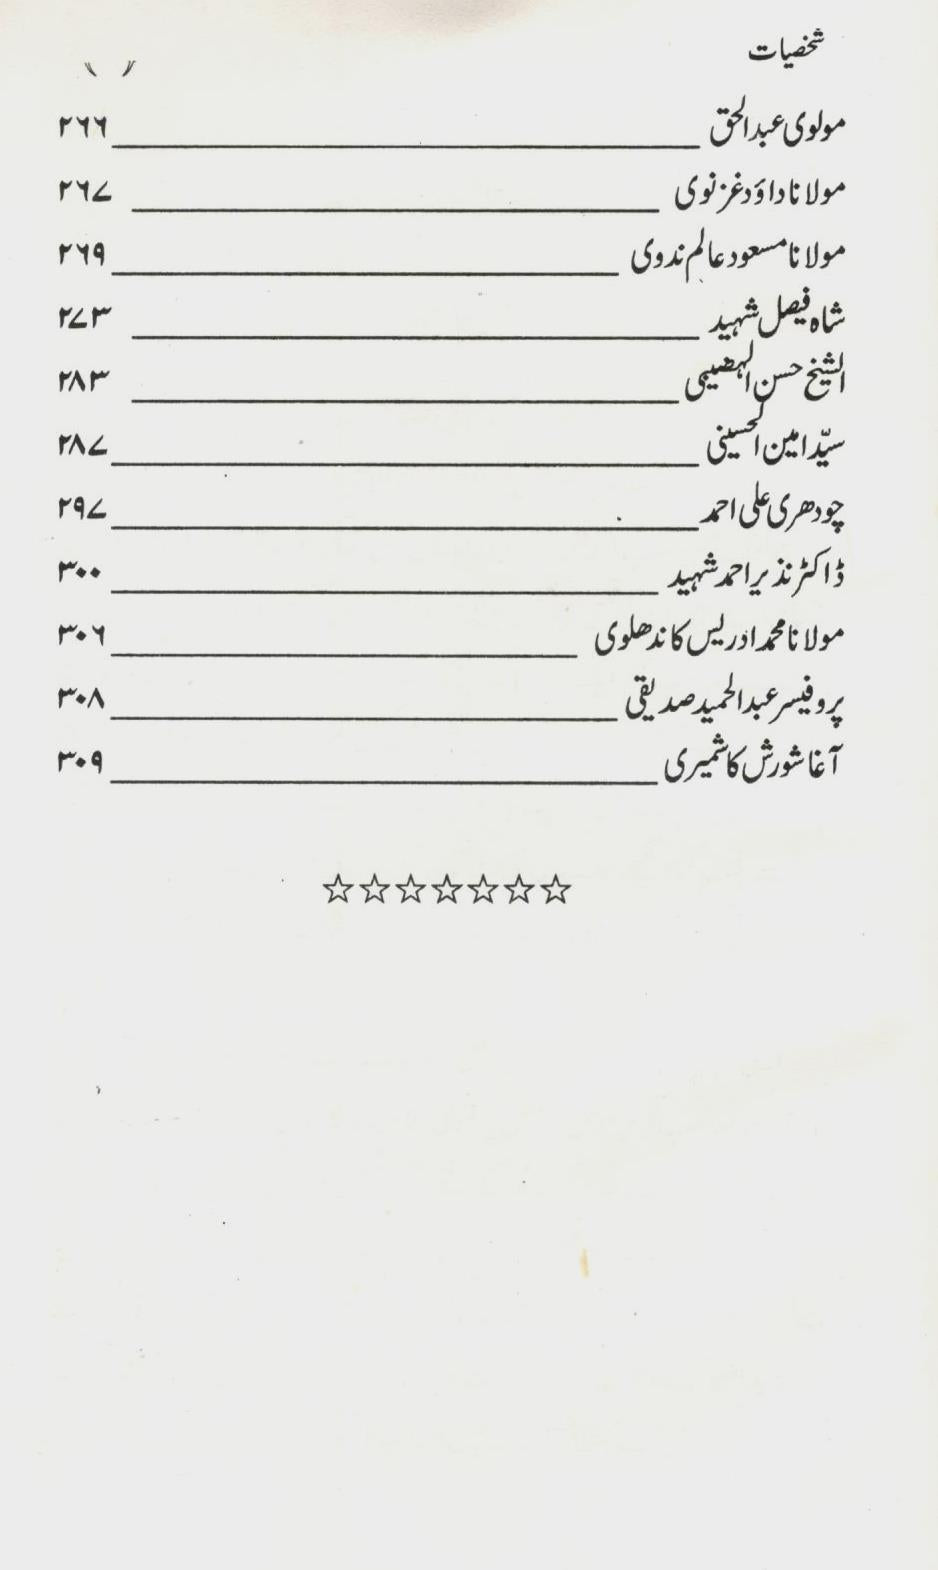 شخصیات
مولوی عبدالحق ۲۶۶
مولانا داؤد غزنوی ۲۶۷
مولانا مسعود عالم ندوی ۲۶۹
شاہ فیصل شہید ۲۷۳
الشیخ حسن الہضیبی ۲۸۳
سیّد امین الحسینی ۲۸۷
چودھری علی احمد ۲۹۷
ڈاکٹر نذیر احمد شہید ۳۰۰
مولانا محمد ادریس کاندھلوی ۳۰۶
پروفیسر عبدالحمید صدیقی ۳۰۸
آغا شورش کاشمیری ۳۰۹
☆☆☆☆☆☆☆